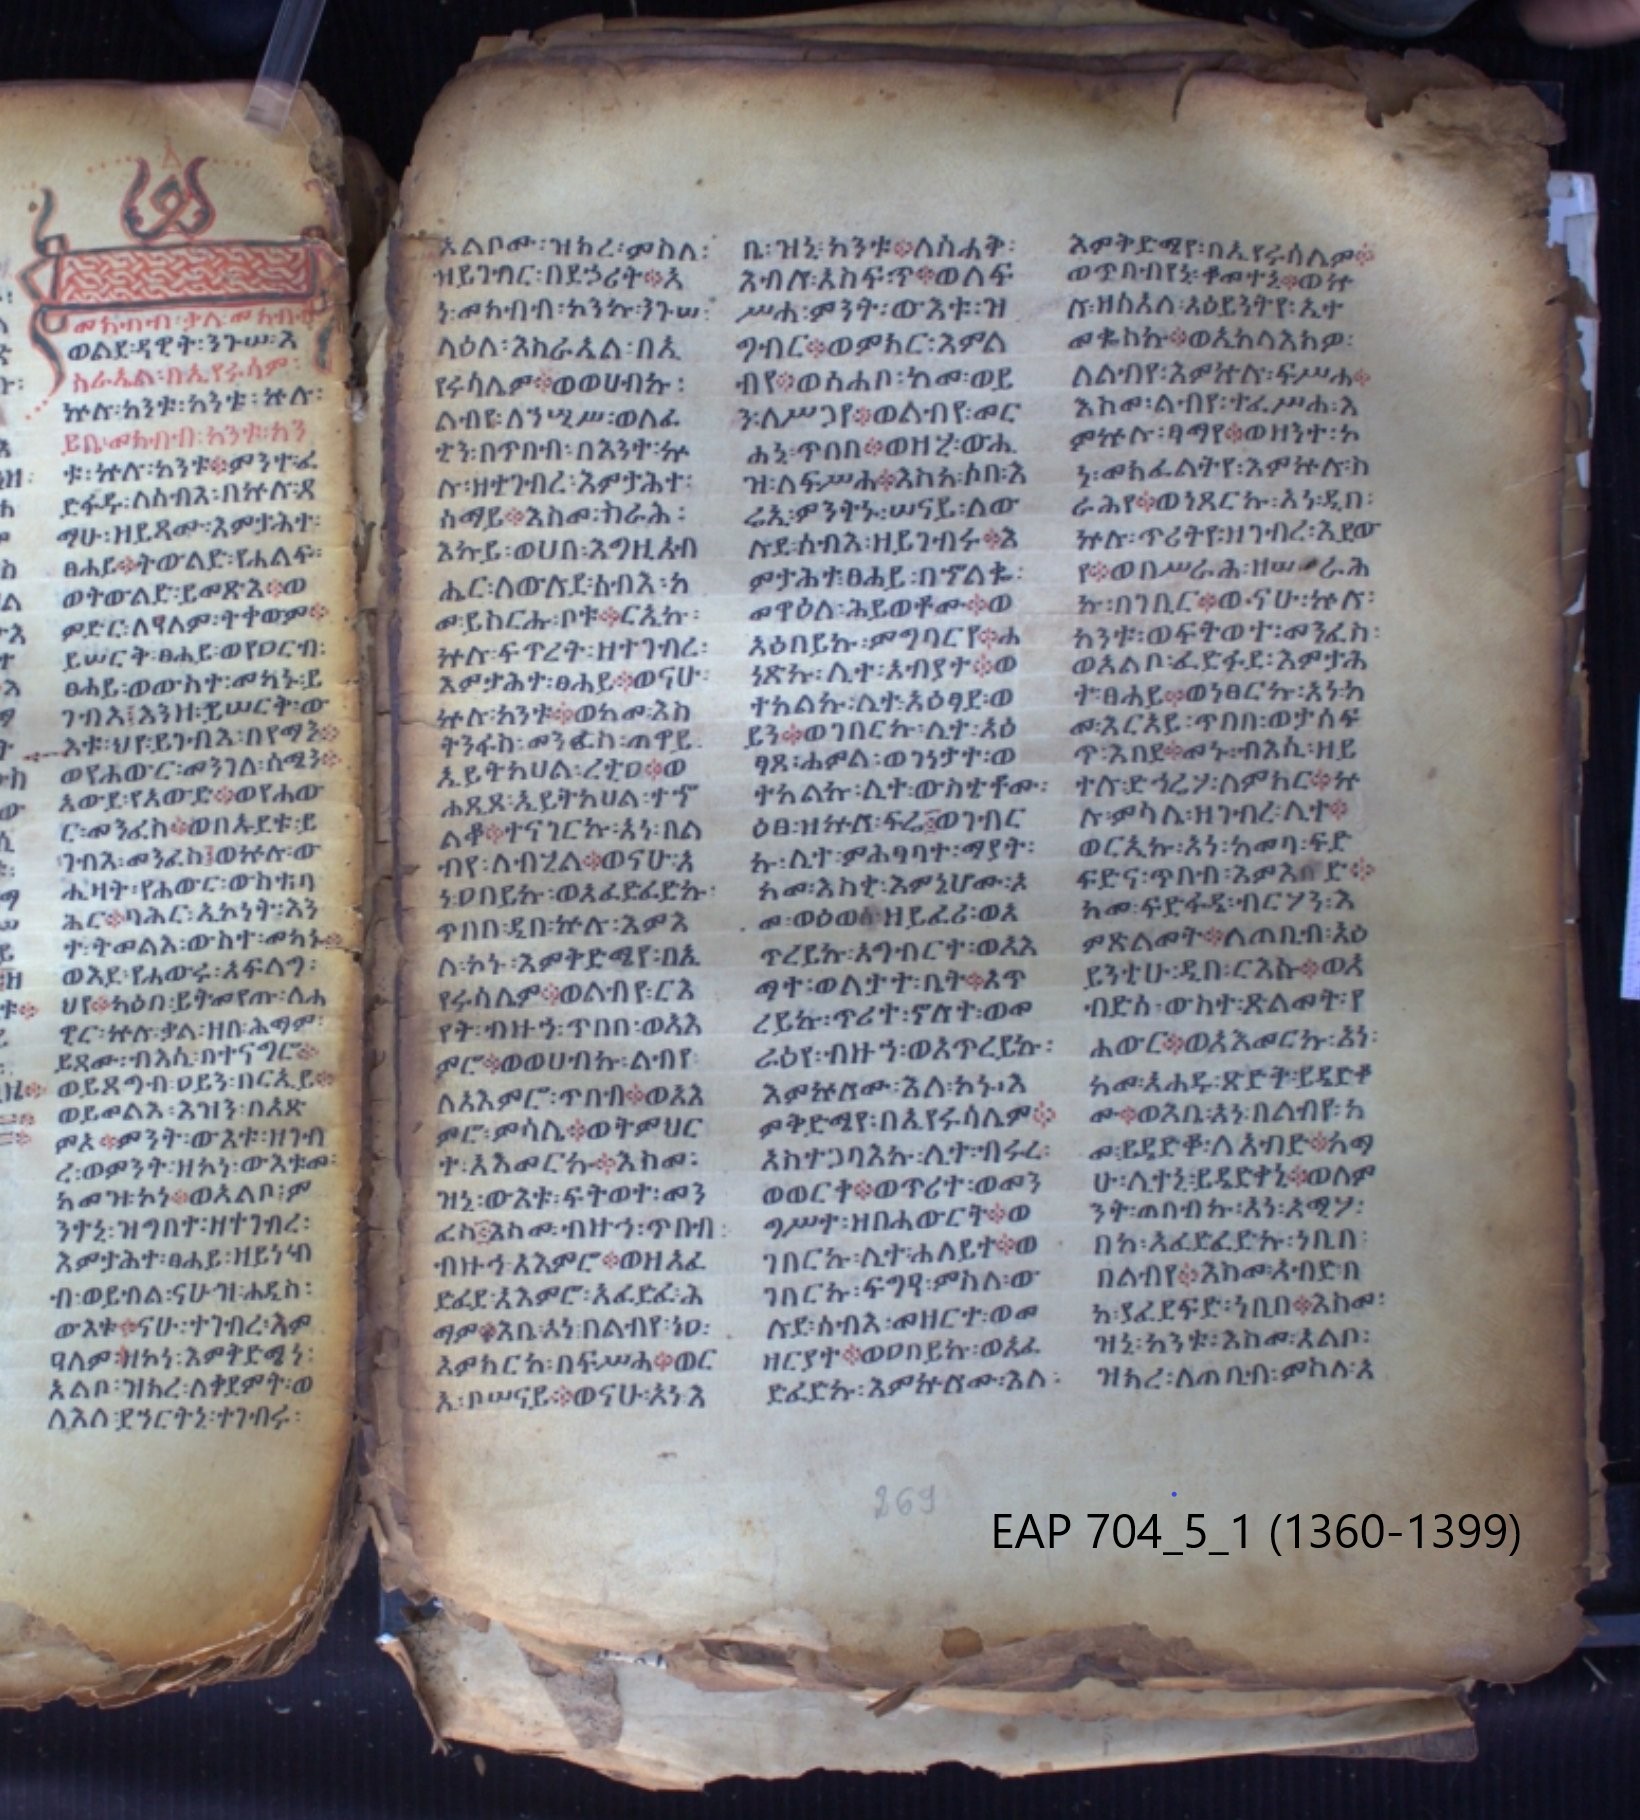 መክብብ፡ቃለ፡መክብብ
ወልደ፡ዳዊት፡ንጉሠ፡እ
ስራኤል፡በኢየሩሳም፡
ኵሉ፡ከንቱ፡ከንቱ፡ኵሉ፡
ይቤ፡መክብብ፡ከንቱ፡ከን
ቱ፡ኵሉ፡ከንቱ፨ምንተ፡ፈ
ድፋዱ፡ለሰብእ፡በኵሉ፡ጻ
ማሁ፡ዘይጻሙ፡እምታሕተ፡
ፀሐይ፨ትውልድ፡የሐልፍ፡
ወትውልድ፡ይመጽእ፨ወ
ምድር፡ለዓለም፡ትቀውም፨
ይሠርት፡ፀሐይ፡ወየዐርብ፡
ፀሐይ፡ወውስተ፡መካኑ፡ይ
ገብእ፤እንዘ፡ይሠርት፡ው
እቱ፡ህየ፡ይገብእ፡በየማን፨
ወየሐውር፡መንገለ፡ሰሜን፨
አውደ፡የአውድ፨ወየሐው
ር፡መንፈስ፨ወበኡደቱ፡ይ
ገብእ፡መንፈስ፤ወኵሉ፡ው
ሒዛት፡የሐውር፡ውስተ፡ባ
ሕር፨ባሕር፡ኢኮነት፡እን
ተ፡ትመልእ፡ውስተ፡መካኑ፨
ወእደ፡የሐውሩ፡አፍላግ፡
ህየ፨ካዕበ፡ይትመየጡ፡ለሐ
ዊር፡ኵሉ፡ቃል፡ዘበ፡ሕማም፡
ይጻሙ፡ብእሲ፡በተናግሮ፨
ወይጸግብ፡ዐይን፡በርእይ፨
ወይመልእ፡እዝን፡በአጽ
ምኦ፨ምንት፡ውእቱ፡ዘገብ
ረ፡ወምንት፡ዘኮነ፡ውእቱመ፡
ከመዝ፡ኮነ፨ወአልቦ፡ም
ንተኒ፡ዝግበተ፡ዘተገብረ፡
እምታሕተ፡ፀሐይ፡ዘይነብ
ብ፡ወይብል፡ናሁ፡ዝ፡ሐዲስ፡
ውእቱ፨ናሁ፡ተገብረ፡እም
ዓለም፡ዘኮነ፡እምቅድሜነ፡
አልቦ፡ዝክረ፡ለቀደምት፡ወ
ለእለ፡ደኃርትኒ፡ተገብሩ፡
አልቦሙ፡ዝክረ፡ምስለ፡
ዝይገብር፡በደኃሪት፨አ
ነ፡መክብብ፡ኮንኩ፡ንጉሠ፡
ላዕለ፡እስራኤል፡በኢ
የሩሳሌም፨ወወሀብኩ፡
ልብየ፡ለኀሢሥ፡ወለፈ
ቲን፡በጥበብ፡በእንተ፡ኵ
ሉ፡ዘተገብረ፡እምታሕተ፡
ሰማይ፨እስመ፡ስራሕ፡
እኩይ፡ወሀበ፡እግዚአብ
ሔር፡ለውሉደ፡ሰብእ፡ከ
መ፡ይስርሑ፡ቦቱ፨ርኢኩ፡
ኵሉ፡ፍጥረት፡ዘተገብረ፡
እምታሕተ፡ፀሐይ፨ወናሁ፡
ኵሉ፡ከንቱ፨ወከመ፡እስ
ትንፋስ፡መንፈስ፡ጠዋይ፡
ኢይትከሀል፡ረቲዐ፨ወ
ሐጺጾ፡ኢይትከሀል፡ተኈ
ልቆ፨ተናገርኩ፡አነ፡በል
ብየ፡ለብሂል፨ወናሁ፡አ
ነ፡ዐበይኩ፡ወአፈድፈድኩ፡
ጥበበ፡ዲበ፡ኵሉ፡እምእ
ለ፡ኮኑ፡እምቅድሜየ፡በኢ
የሩሳሌም፨ወልብየ፡ርእ
የት፡ብዙኀ፡ጥበበ፡ወአእ
ምሮ፨ወወሀብኩ፡ልብየ፡
ለአእምሮ፡ጥበብ፨ወአእ
ምሮ፡ምሳሌ፨ወትምህር
ተ፡አእመርኩ፨እስመ፡
ዝኒ፡ውእቱ፡ፍትወተ፡መን
ፈስ፤እስመ፡ብዙኀ፡ጥበብ፡
ብዙኀ፡አእምሮ፨ወዘአፈ
ድፈደ፡አእምሮ፡አፈድፈ፡ሕ
ማም፨እቤ፡አነ፡በልብየ፡ነዐ፡
እምከርከ፡በፍሥሐ፨ወር
ኢ፡በሠናይ፨ወናሁ፡አነ፡እ
ቤ፡ዝኒ፡ከንቱ፨ለስሐቅ፡
እብሎ፡አስፍ፡ጥ፨ወለፍ
ሥሐ፡ምንት፡ውእቱ፡ዝ
ግብር፨ወምከር፡እምል
ብየ፨ወሰሐቦ፡ከመ፡ወይ
ን፡ለሥጋየ፨ወልብየ፡መር
ሐኒ፡ጥበበ፨ወዘሂ፡ውሒ
ዝ፡ለፍሥሐ፨እስከ፡ሶበ፡እ
ሬኢ፡ምንትኑ፡ሠናይ፡ለው
ሉደ፡ሰብእ፡ዘይገብሩ፨እ
ምታሕተ፡ፀሐይ፡በኈልቈ፡
መዋዕለ፡ሕይወቶሙ፨ወ
አዕበይኩ፡ምግባርየ፨ሐ
ነጽኩ፡ሊተ፡አብያተ፨ወ
ተከልኩ፡ሊተ፡አዕፃደ፡ወ
ይን፨ወገበርኩ፡ሊተ፡አዕ
ፃደ፡ሐምል፡ወገነታተ፡ወ
ተከልኩ፡ሊተ፡ውስቴቶሙ፡
ዕፀ፡ዝኵሉ፡ፍሬ፤ወገብር
ኩ፡ሊተ፡ምሕፃባተ፡ማያት፡
ከመ፡እስቲ፡እምኔሆሙ፡አ
መ፡ወዕወፅ፡ዘይፈሪ፡ወአ
ጥረይኩ፡አግብርተ፡ወአእ
ማተ፡ወልታተ፡ቤት፨አጥ
ረይኩ፡ጥሪተ፡ኖሎት፡ወመ
ራዕየ፡ብዙኀ፡ወአጥረይኩ፡
እምኵሎሙ፡እለ፡ኮኑ፡እ
ምቅድሜየ፡በኢየሩሳሌም፨
አስተጋባእኩ፡ሊተ፡ብሩረ፡
ወወርቀ፨ወጥሪተ፡ወመን
ግሥተ፡ዘበሐውርት፨ወ
ገበርኩ፡ሊተ፡ሐለይተ፨ወ
ገበርኩ፡ፍግዓ፡ምስለ፡ው
ሉደ፡ሰብእ፡መዘርተ፡ወመ
ዘርያተ፨ወዐበይኩ፡ወአፈ
ድፈድኩ፡እምኵሎሙ፡እለ፡
እምቅድሜየ፡በኢየሩሳሌም፨
ወጥበብየኒ፡ቆመተኒ፨ወኵ
ሉ፡ዘስእለ፡አዕይንትየ፡ኢተ
መቈስኩ፨ወኢከላእክዎ፡
ለልብየ፡እምኵሉ፡ፍሥሐ፨
እስመ፡ልብየ፡ተፈሥሐ፡እ
ምኵሉ፡ፃማየ፨ወዘንተ፡ኮ
ነ፡መክፈልትየ፡እምኵሉ፡ስ
ራሕየ፨ወነጸርኩ፡አነ፡ዲበ፡
ኵሉ፡ጥሪትየ፡ዘገብረ፡እደው
የ፨ወበሥራሕ፡ዘሠራሕ
ኩ፡በገቢር፨ወ፡ናሁ፡ኵሉ፡
ከንቱ፡ወፍትወተ፡መንፈስ፡
ወአልቦ፡ፈድፋደ፡እምታሕ
ተ፡ፀሐይ፨ወነፀርኩ፡አነ፡ከ
መ፡እርአይ፡ጥበበ፡ወታሰፍ
ጥ፡እበደ፨መኑ፡ብእሲ፡ዘይ
ተሉ፡ድኅሬሃ፡ለምክር፨ኵ
ሉ፡ምሳሌ፡ዘገብረ፡ሊተ፨
ወርኢኩ፡አነ፡ከመባ፡ፍድ
ፍድና፡ጥበብ፡እምእበድ፨
ከመ፡ፍድፋዴ፡ብርሃን፡እ
ምጽልመት፨ለጠቢብ፡አዕ
ይንቲሁ፡ዲበ፡ርእሱ፨ወአ
ብድሰ፡ውስተ፡ጽልመት፡የ
ሐውር፨ወአእመርኩ፡አነ፡
ከመ፡አሐዱ፡ጽድቅ፡ይዴድቆ
ሙ፨ወእቤ፡አነ፡በልብየ፡ከ
መ፡ይዴድቆ፡ለአብድ፨ከማ
ሁ፡ሊተኒ፡ይዴድቀኒ፨ወለም
ንት፡ጠበብኩ፡አነ፡አሜሃ፡
በከ፡አፈድፈድኩ፡ነቢበ፡
በልብየ፨እስመ፡አብድ፡በ
ከ፡ያፈደፍድ፡ነቢበ፨እስመ፡
ዝኒ፡ከንቱ፡እስመ፡አልቦ፡
ዝክረ፡ለጠቢብ፡ምስለ፡አ
269
EAP 704_5_1 (1360-1399)